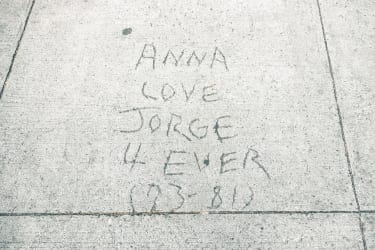 ANNA
LOVE
JORGE
4 EVER
(73-81)